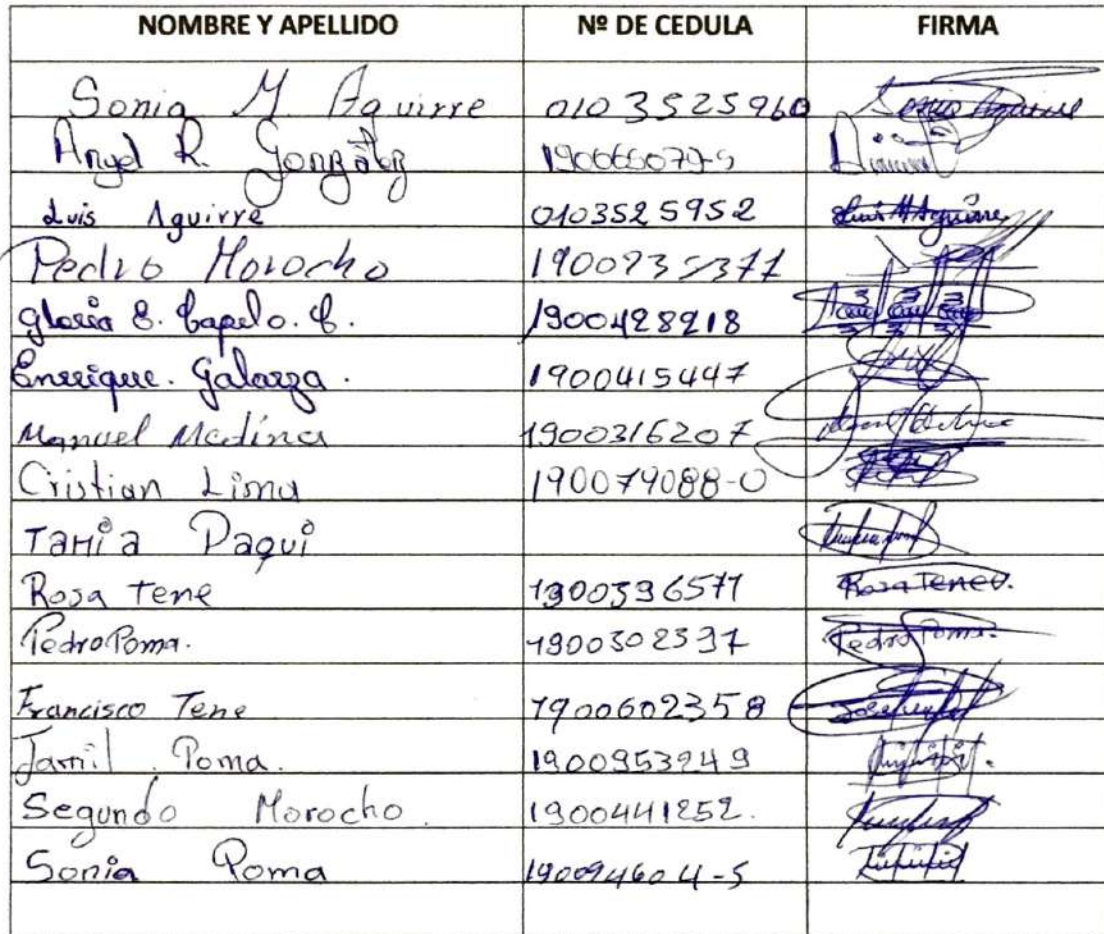 NOMBRE Y APELLIDO Nº DE CEDULA FIRMA
Sonia M Aguirre 0103525960 Sonia Aguirre
Angel R. González 190066079-5
Luis Aguirre 0103525952 Luis A Aguirre
Pedro Morocho
Gloria E. Capelo. C. 1900428218
Enrrique. Galarza. 1900415447
Manuel Medina 1900316207
Cristian Lima 190079088-0
Tania Paqui
Rosa Tene 1900396571 Rosa Tene
Pedro Poma. 1900302397 Pedro Poma.
Francisco Tene 1900602358
Jamil. Poma. 1900953249
Segundo Morocho. 1900441252.
Sonia Poma 190094604-5